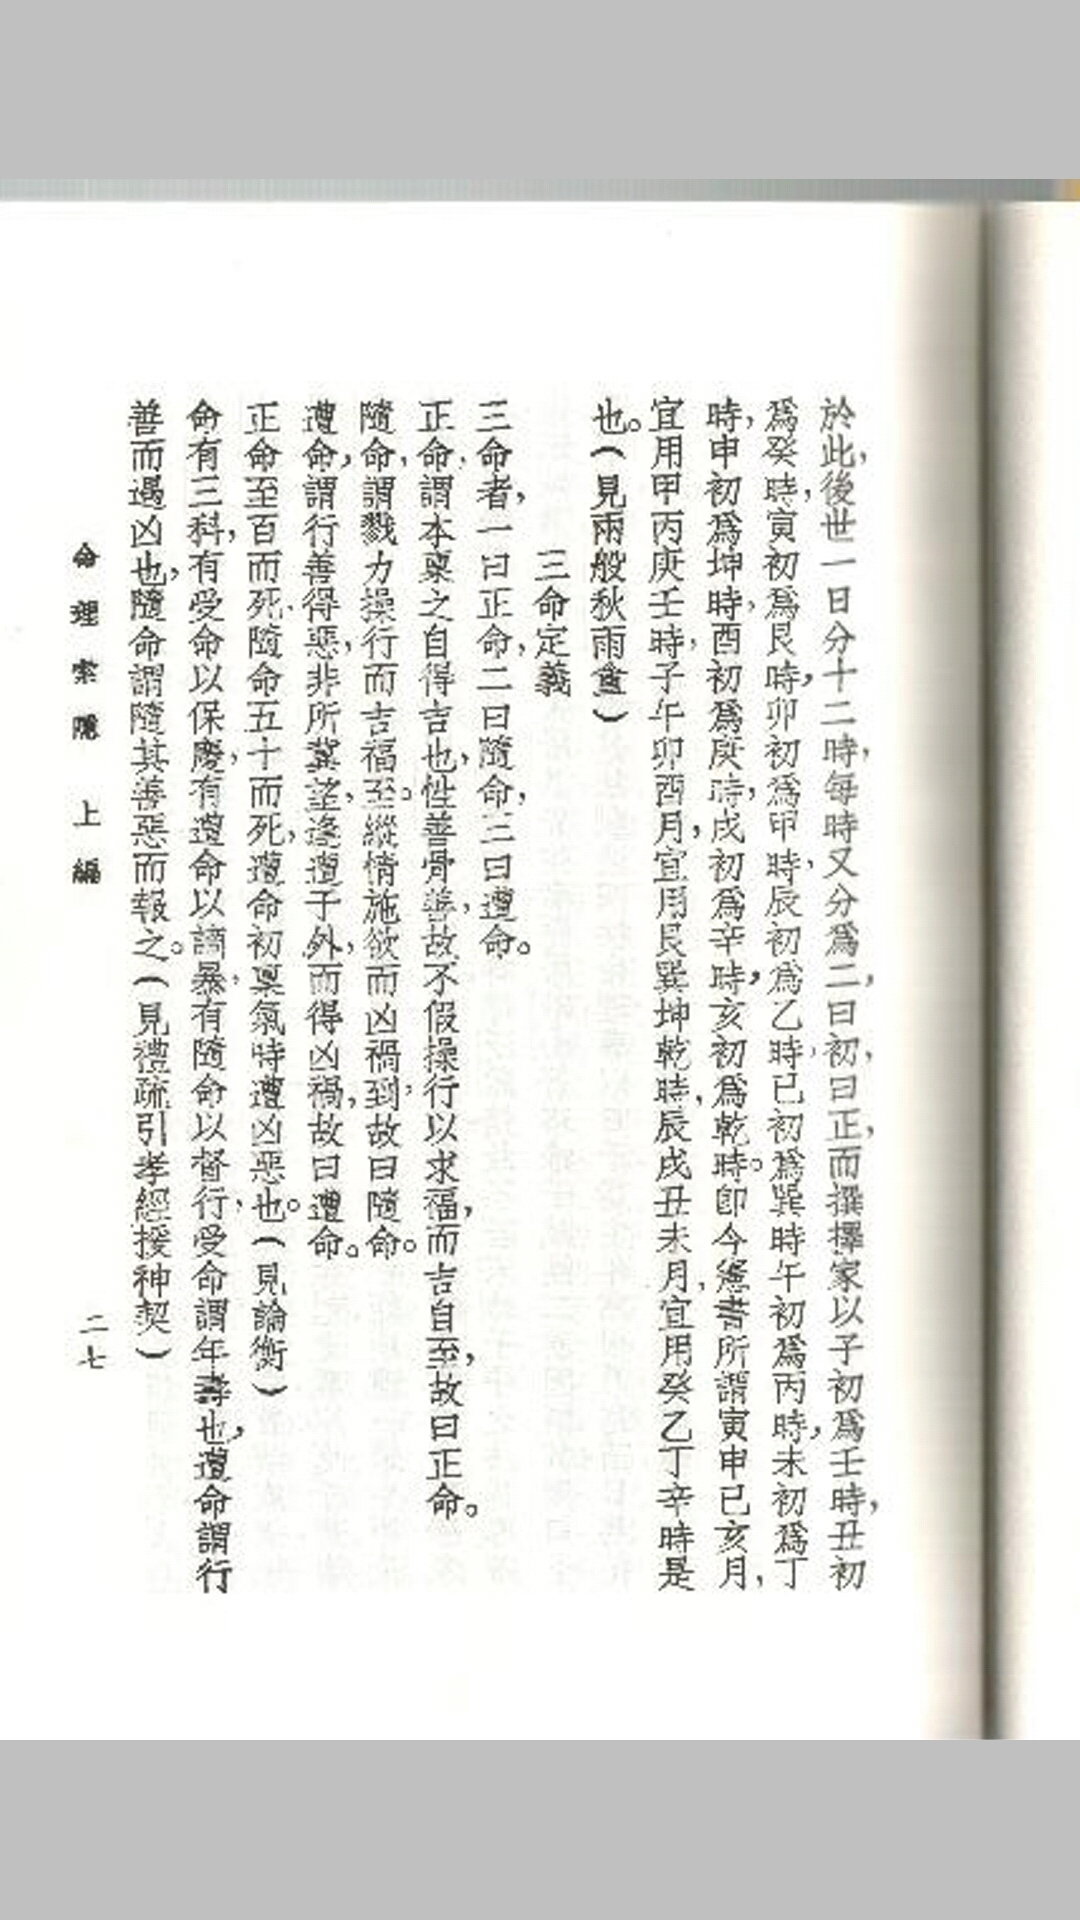 於此,後世一日分十二時,每時又分爲二,曰初,曰正,而撰擇家以子初爲壬時,丑初
爲癸時,寅初爲艮時,卯初爲甲時,辰初爲乙時,巳初爲巽時午初爲丙時,未初爲丁
時,申初爲坤時,酉初爲庚時,戌初爲辛時,亥初爲乾時。卽今憲書所謂寅申巳亥月,
宜用甲丙庚壬時,子午卯酉月,宜用艮巽坤乾時,辰戌丑未月,宜用癸乙丁辛時是
也。(見兩般秋雨盦)
三命定義
三命者,一曰正命,二曰隨命,三曰遭命。
正命,謂本稟之自得吉也,性善骨善,故不假操行以求福,而吉自至,故曰正命。
隨命,謂戮力操行而吉福至。縱情施欲而凶禍到,故曰隨命。
遭命,謂行善得惡,非所冀望,逢遭于外,而得凶禍,故曰遭命。
正命至百而死,隨命五十而死,遭命初稟氣時遭凶惡也。(見論衡)
命有三科,有受命以保慶,有遭命以謫暴,有隨命以督行,受命謂年壽也,遭命謂行
善而遇凶也,隨命謂隨其善惡而報之。(見禮疏引孝經援神契)
命理索隱 上編 二七